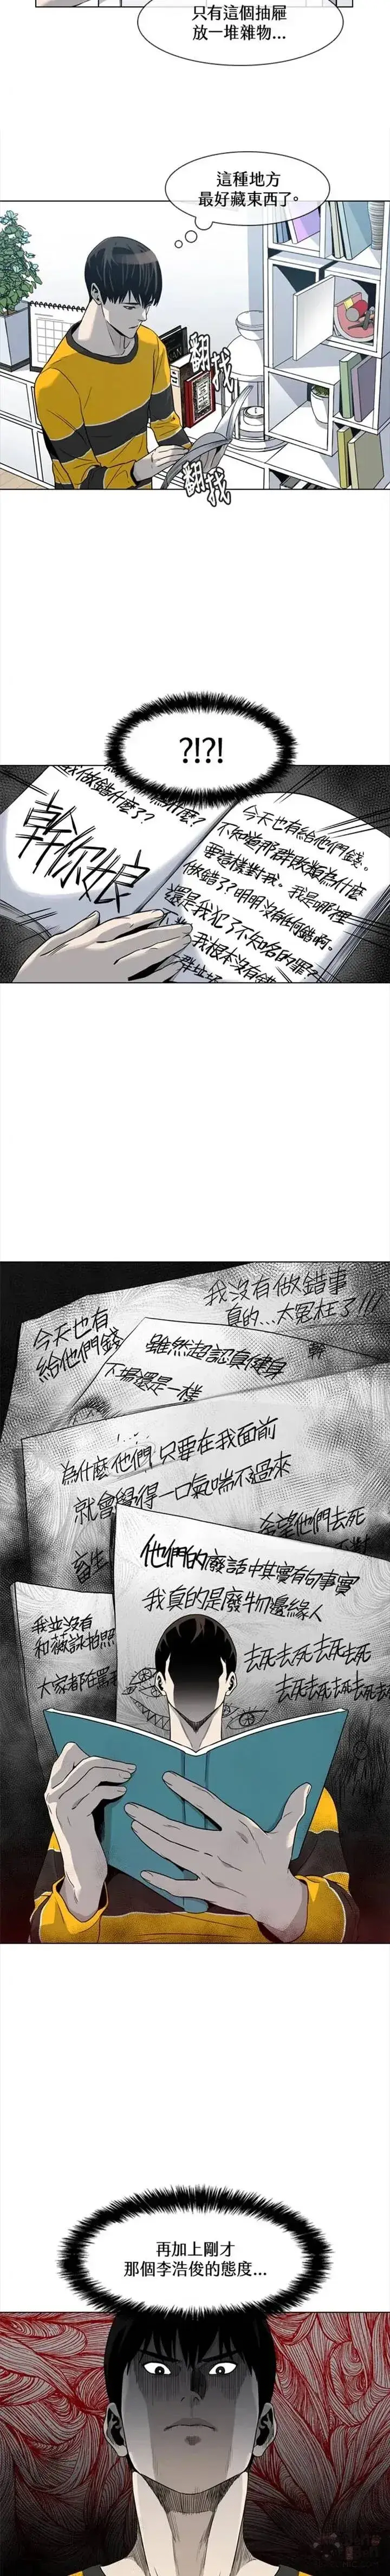 只有這個抽屜
放一堆雜物...
這種地方
最好藏東西了。
翻找
翻找
?!?!
做錯什麼了?
為什麼?
幹你娘
今天也有給他們錢。
不知道那群敗類為什麼
要這樣對我。我是哪裡
做錯了?明明沒有任何錯啊。
還是我犯了不知名的罪?
我根本沒有錯
我沒有做錯事
真的...太冤枉了!!!
今天也有
給他們錢
雖然超認真健身
下場還是一樣
幹
為什麼他們只要在我面前
就會覺得一口氣喘不過來
希望他們去死
畜生
他們的廢話中其實有句事實
我真的是廢物邊緣人
我並沒有
和薇詠拍照
大家都在罵
去死去死去死去死
去死去死去死去死
再加上剛才
那個李浩俊的態度...